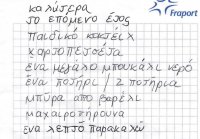 καλύτερα
το επόμενο έτος
Fraport
παιδικό κοκτέιλ
χαρτοπετσέτα
ένα μεγάλο μπουκάλι νερό
ένα ποτήρι / 2 ποτήρια
μπύρα από βαρέλι
μαχαιροπήρουνα
ένα λεπτό παρακαλώ